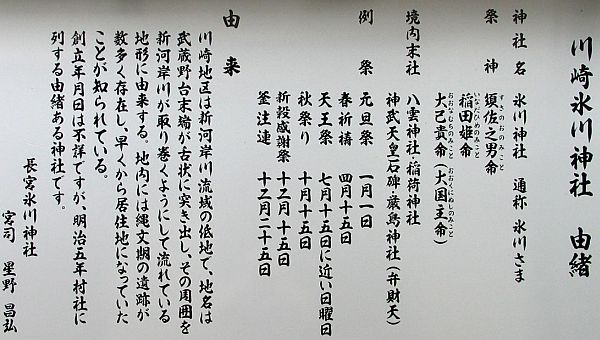 川崎氷川神社　由緒
神社名　氷川神社　通称　氷川さま
祭神　須佐之男命
すさのおのみこと
稲田姫命
いなだひめのみこと
大己貴命（大国主命）
おおなむちのみこと　おおくにぬしのみこと
境内末社　八雲神社・稲荷神社
神武天皇石碑・厳島神社（弁財天）
例祭　元旦祭　一月一日
春祈禱　四月十五日
天王祭　七月十五日に近い日曜日
秋祭り　十月十五日
新穀感謝祭　十二月十五日
釜注連　十二月二十五日
由来
川崎地区は新河岸川流域の低地で、地名は
武蔵野台末端が舌状に突き出し、その周囲を
新河岸川が取り巻くようにして流れている
地形に由来する。地内には縄文期の遺跡が
数多く存在し、早くから居住地になっていた
ことが知られている。
創立年月日は不詳ですが、明治五年村社に
列する由緒ある神社です。
長宮氷川神社
宮司　星野昌弘